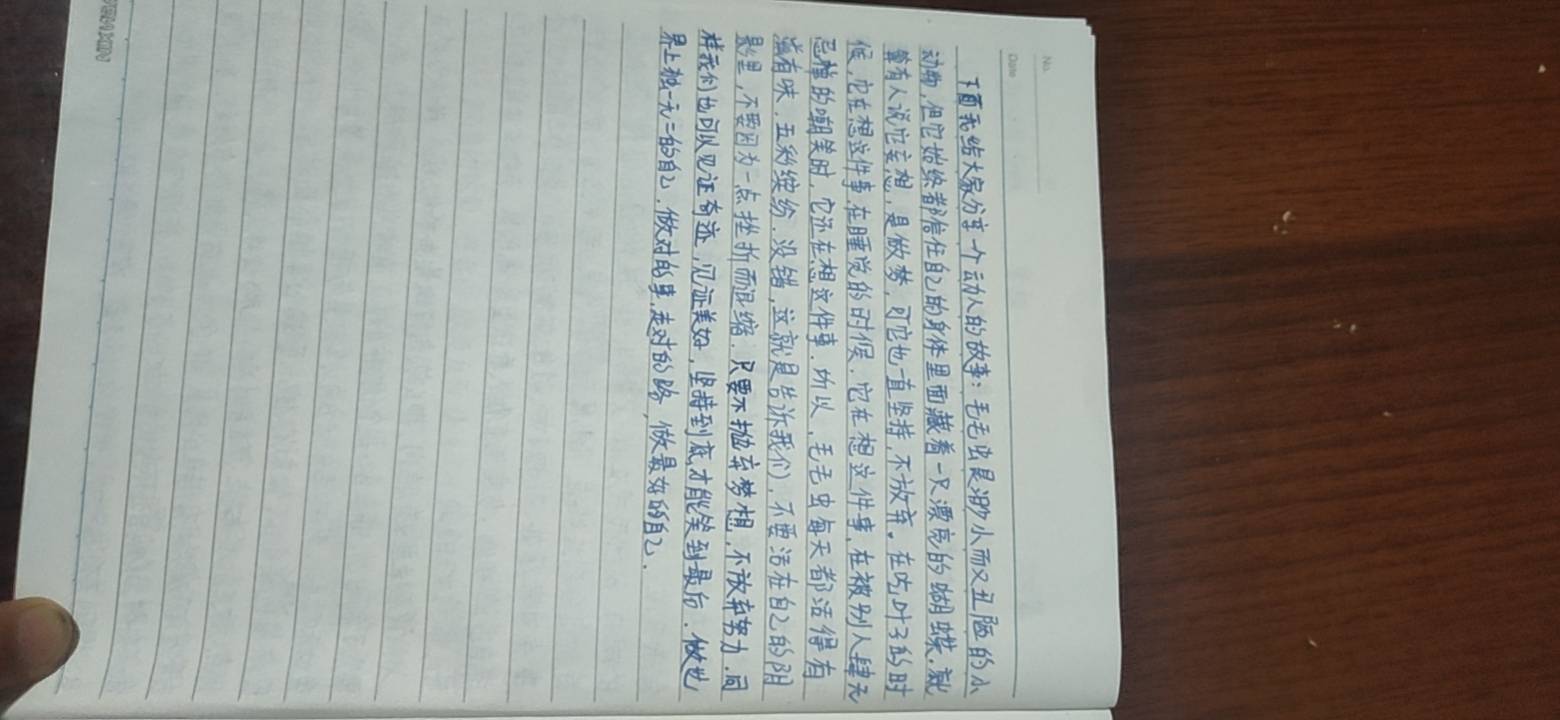 No.
Date
下面我给大家分享一个动人的故事：毛毛虫是渺小而又丑陋的小
动物，但它始终都信任自己的身体里面藏着一只漂亮的蝴蝶，就
算有人说它妄想，是做梦，可它也一直坚持，不放弃。在吃叶子的时
候，它在想这件事，在睡觉的时候，它在想这件事，在被别人肆无
忌惮的嘲笑时，它还在想这件事．所以，毛毛虫每天都活得有
滋有味，五彩缤纷．没错，这就是告诉我们，不要活在自己的阴
影里，不要因为一点挫折而退缩．只要不抛弃梦想，不放弃努力．同
样我们也可以见证奇迹，见证美好，坚持到底，才能笑到最后．做世
界上独一无二的自己．做对的事，走对的路，做最好的自己．